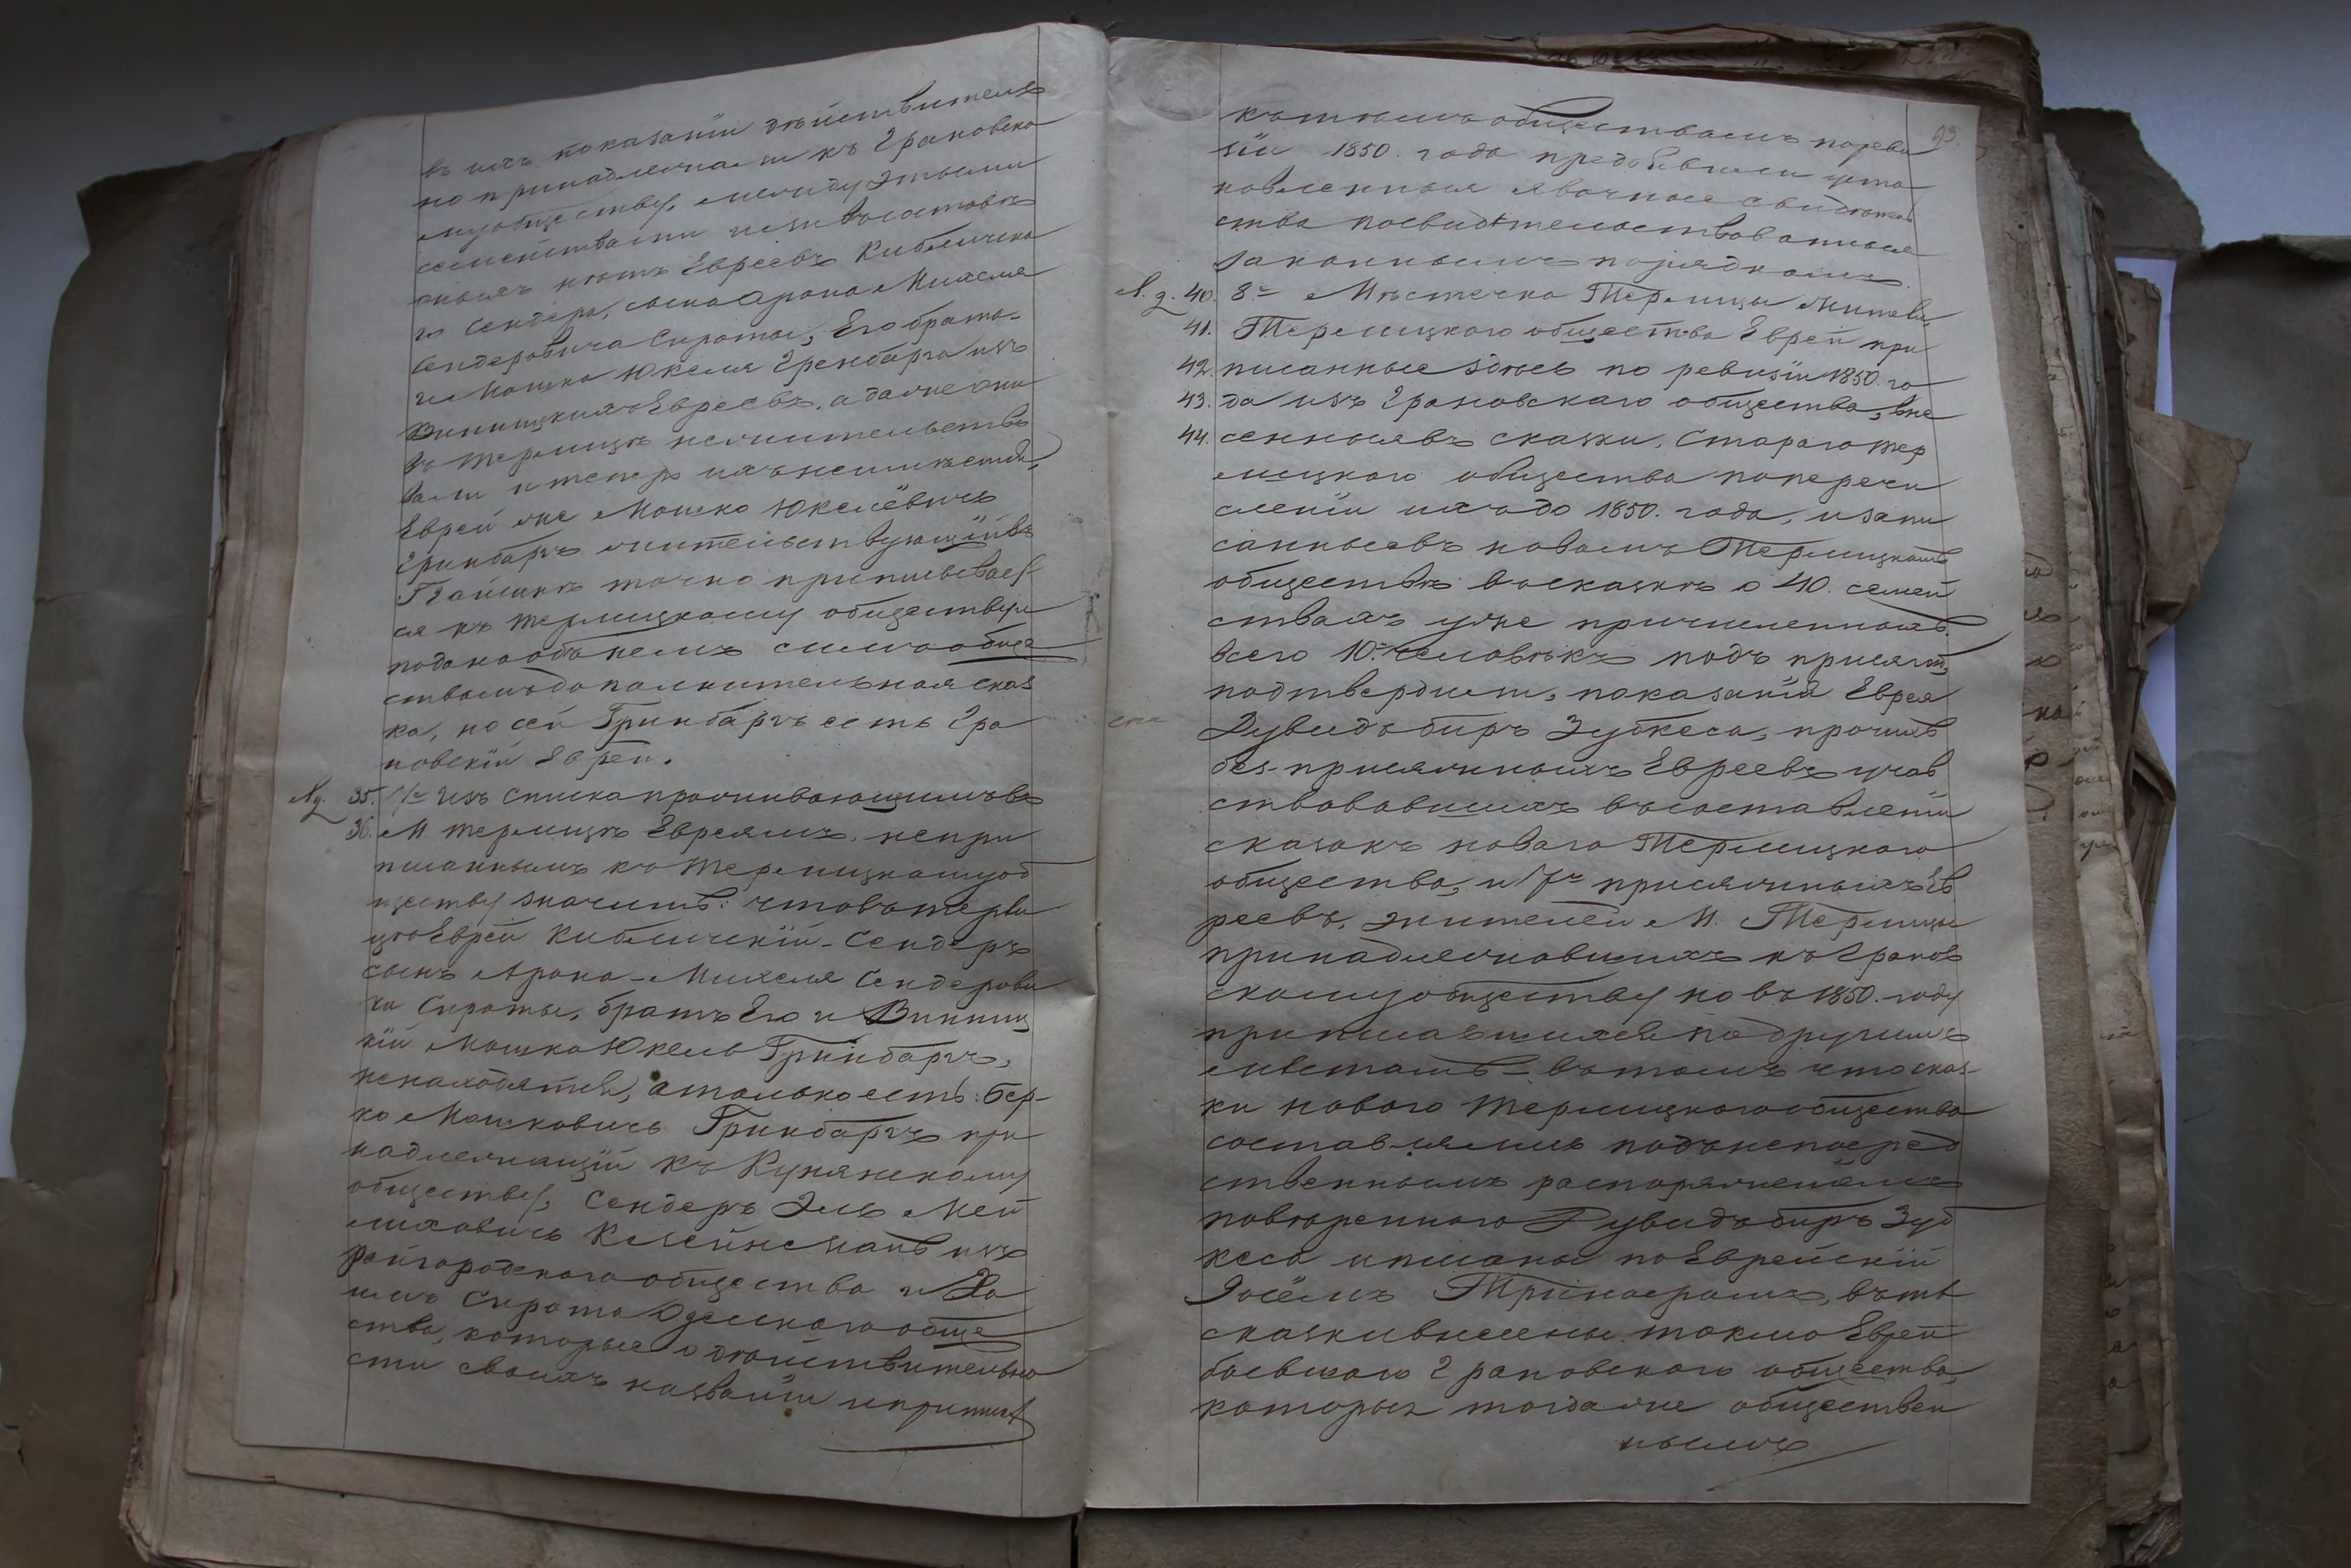 въ ихъ показаніи дѣйствитель
но принадлежали къ Грановско
му обществу, между этими
семействами
Евреевъ Кибличска
го Сендера, сына Арона Михеля
Сендеровича Сироты, Его брата
и Мошка Юкеля Гренбарга изъ
Винницкихъ Евреевъ, а далѣе они
въ Терлицѣ нежительство
вали и теперь ихъ
Еврей же Мошко Юкелёвичъ
Гринбаргъ жительствующій въ
Гайсинѣ точно приписывает
ся къ Терлицкому обществу и
подана объ немъ симъ обще
ствомъ дополнительная сказ
ка, но сей Гринбаргъ есть Гра
новскій Еврей.
Л. д. 35. 7е Изъ списка проживающимъ въ
36. М Терлицѣ Евреямъ, непри
писаннымъ къ Терлицкому об
ществу значитъ: что въ Терли
цѣ Еврей Кибличскій - Сендеръ
сынъ Арона - Михеля Сендерови
ча Сироты, братъ Его и Винниц
кій Мошка Юкель Гринбаргъ,
ненаходятся, а только есть: Бер-
ко Мошковичъ Гринбаргъ при
надлежащій къ Кунянскому
обществу, Сендеръ Эль Мей
лиховичъ Клейнеманъ изъ
райгородскаго общества и Ха
имъ Сирота Одескаго обще
ства, которые о дѣйствительно
сти своихъ названій и приписки
93.
къ тѣмъ обществамъ по реви
зіи 1850. года предъявили уста
новленныя явочные свидѣтель
ства посвидѣтельствованные
законнымъ порядкомъ.
Л. д. 40. 8е Мѣстечка Терлицы жители
41. Терлицкаго общества Евреи при
42. писанные здѣсь по ревизіи 1850. го
43. да изъ Грановскаго общества, вне
44. сенныя въ сказки, Стараго Тер
лицкаго общества по перечи
сленіи ихъ до 1850. года, и запи
санные въ новомъ Терлицкомъ
обществѣ въ сказкѣ о 40. семей
ствахъ уже причисленныхъ
всего 10. человѣкъ подъ присягою,
подтвердили, показанія Еврея
Рувидъ биръ Зудкеса, прочихъ
без-присяжныхъ Евреевъ учав
ствовавшихъ въ составленіи
сказокъ новаго Терлицкаго
общества, и 7ъ присяжныхъ Ев
реевъ, жителей М. Терлицы
принадлежавшихъ къ Гранов
скому обществу но въ 1850. году
приписавшихся по другимъ
мѣстамъ - въ томъ что сказ-
ки новаго Терлицкаго общества
составлялись подъ непосред
ственнымъ распоряженіемъ
повѣреннаго Рувидъ биръ Зуд
кеса и писаны по Еврейскій
въ тѣ
сказки внесены токмо Евреи
бывшаго Грановскаго общества,
которыя тогда же обществен
нымъ